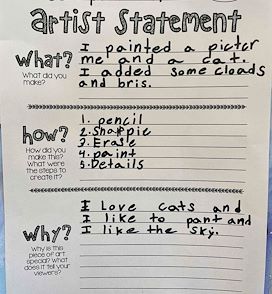 artist Statement
What?
What did you
make?
I painted a pictcr
me and a cat.
I added some cloads
and bris.
how?
How did you
make this?
What were
the steps to
create it?
1. pencil
2. Sharpie
3. Erasle
4. paint
5. Details
Why?
Why is this
piece of art
special? What
does it tell your
viewers?
I Love cats and
I like to pant and
I like the sky.